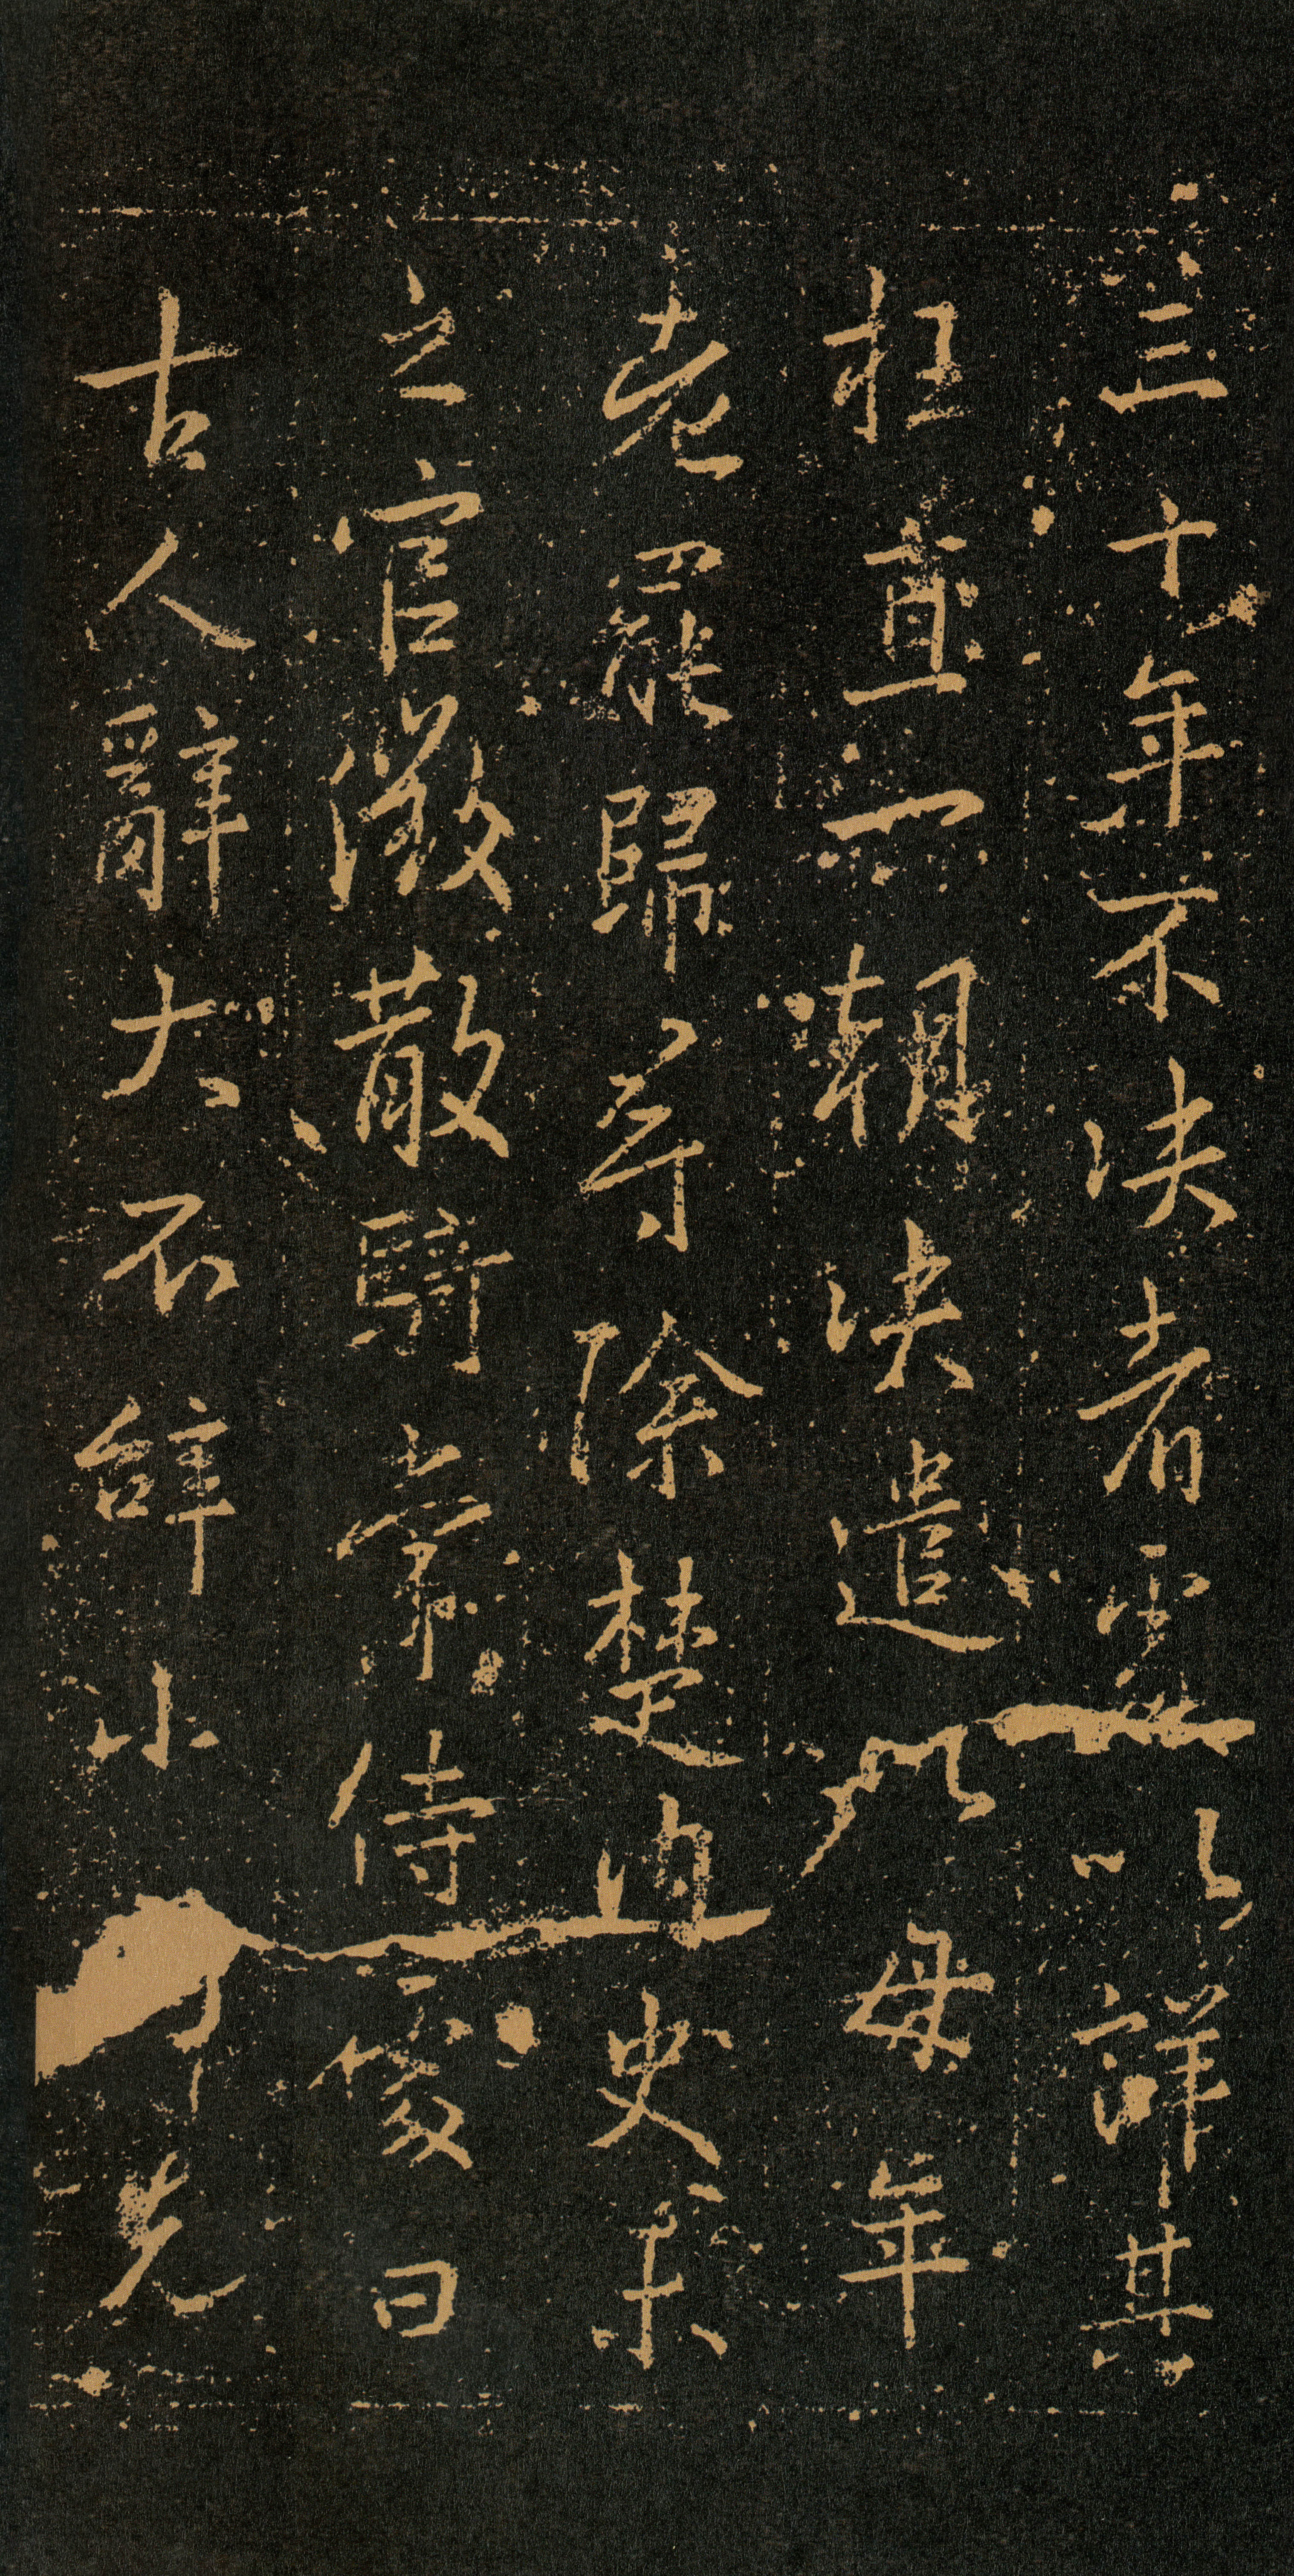 三十年不決者處以詳其
枉直一朝決遣以母年
老罷歸尋除楚內史未
之官徵散騎常侍處曰
古人辭大不辭小乃先